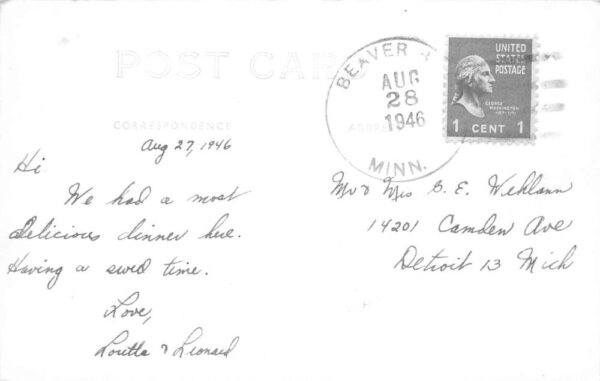 POST CARD
CORRESPONDENCE
ADDRESS
BEAVER
AUG
28
1946
MINN.
UNITED
STATES
POSTAGE
GEORGE
WASHINGTON
1789-1797
1 CENT 1
Aug 27, 1946
Hi
We had a most
delicious dinner here.
Having a time.
Love,
Loretta & Leonard
Mr & Mrs G. E.
14201 Camden Ave
Detroit 13 Mich